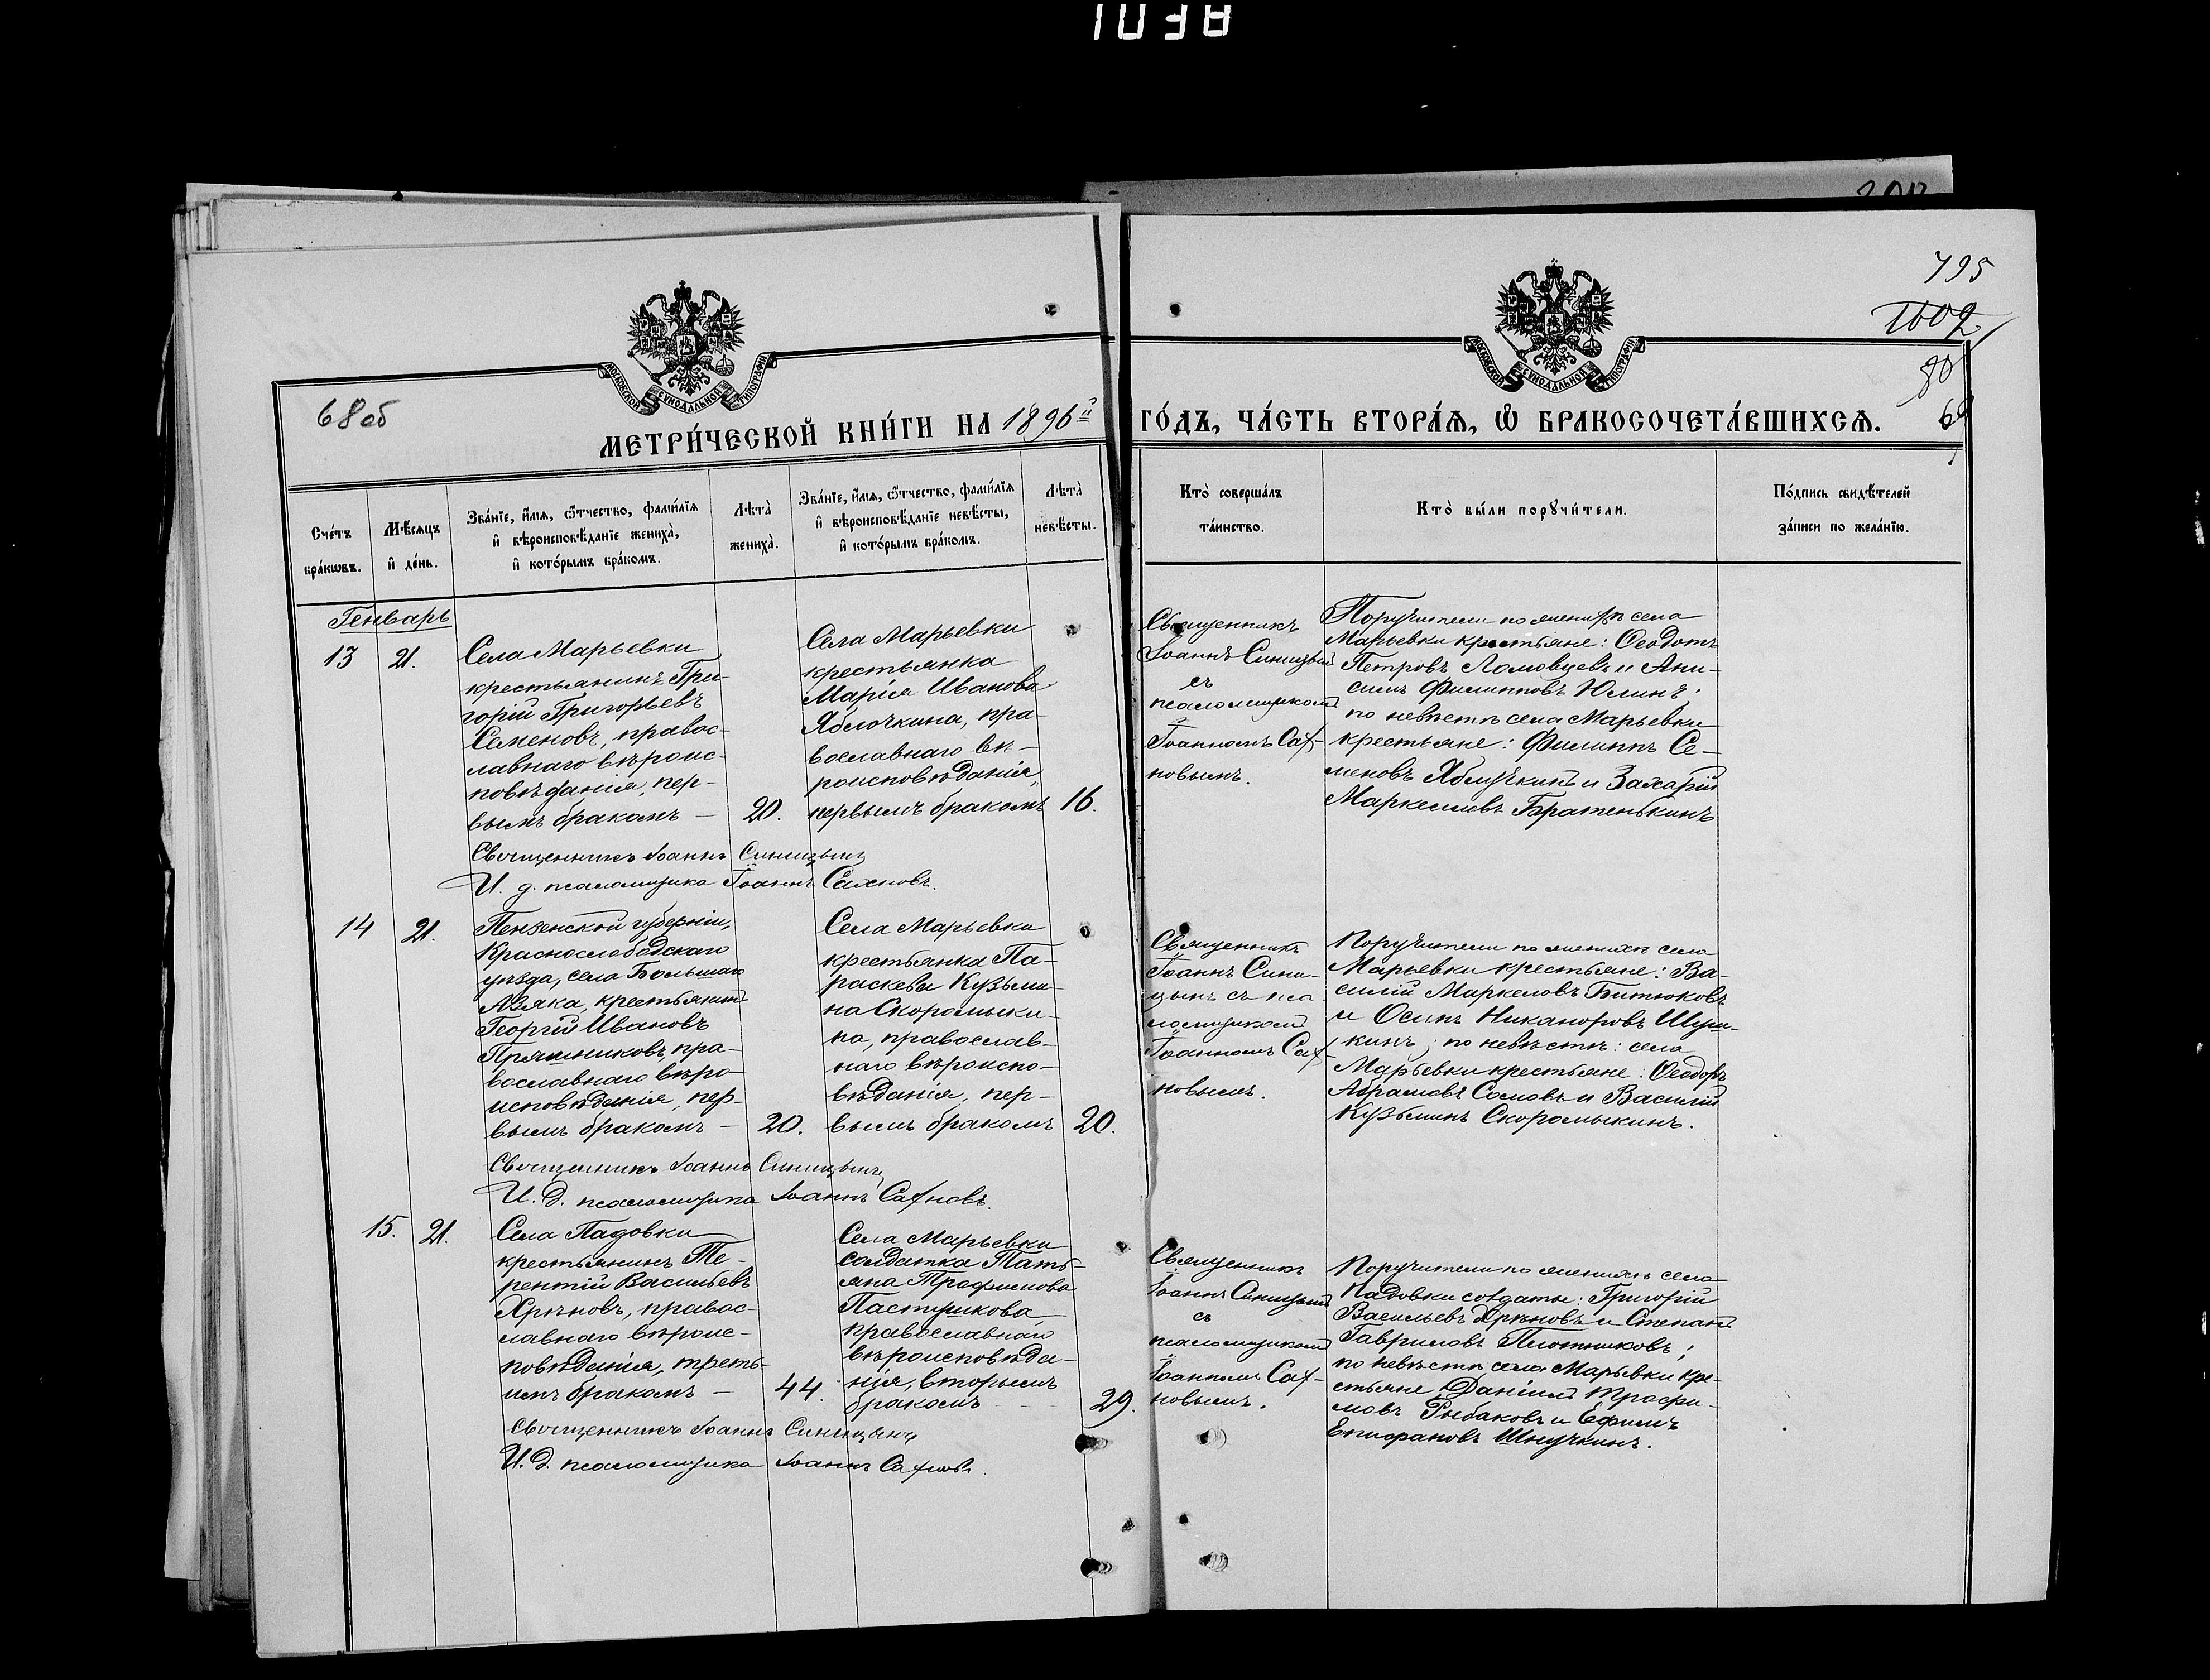 1038
795
1602
80
69
68 об
МОСКОВСКОЙ СѴНОДАЛЬНОЙ ТИПОГРАФІИ
МОСКОВСКОЙ СѴНОДАЛЬНОЙ ТИПОГРАФІИ
МЕТРИ́ЧЕСКОЙ КНИ́ГИ НА 1896й ГО́ДЪ, ЧА́СТЬ ВТОРА́Я, Ѽ БРАКОСОЧЕТА́ВШИХСЯ.
Сче́тъ бра́кѡвъ.
Мѣ́сяцъ и҆ де́нь.
Зва́нїе, и҆́мя, ѻ҆́тчество, фами́лїя
и҆ вѣроисповѣ́данїе жениха̀,
и҆ кото́рымъ бра́комъ.
Лѣта̀ жениха̀.
Зва́нїе, и҆́мя, ѻ҆́тчество, фами́лїя
и҆ вѣроисповѣ́данїе невѣ́сты,
и҆ кото́рымъ бра́комъ.
Лѣта̀ невѣ́сты.
Кто̀ соверша́лъ
та́инство.
Кто̀ бы́ли порꙋчи́тели.
По́дпись свидѣ́телей
за́писи по жела́нїю.
Генварь
13
21.
Села Марьевки
крестьянинъ Гри-
горій Григорьевъ
Семеновъ, правос-
лавнаго вѣроис-
повѣданія, пер-
вымъ бракомъ —
20.
Села Марьевки
крестьянка
Марія Иванова
Яблочкина, пра-
вославнаго вѣ-
роисповѣданія,
первымъ бракомъ
16.
Священникъ
Іоаннъ Синицынъ
съ
псаломщикомъ
Іоанномъ Сах-
новымъ.
Поручители по женихѣ села
Марьевки крестьяне: Ѳеодотъ
Петровъ Ломовцевъ и Ани-
симъ Филипповъ Юлинъ;
по невѣстѣ села Марьевки
крестьяне: Филиппъ Се-
меновъ Яблучкинъ и Захарій
Маркеловъ Братенькинъ
Священникъ Іоаннъ Синицынъ
И. д. псаломщика Іоаннъ Сахновъ.
14
21.
Пензенской губерніи,
Краснослободскаго
уѣзда, села Большаго
Азяка, крестьянинъ
Георгій Ивановъ
Пряшниковъ, пра-
вославнаго вѣро-
исповѣданія, пер-
вымъ бракомъ —
20.
Села Марьевки
крестьянка Па-
раскева Кузьми-
на Скоромыки-
на, православ-
наго вѣроиспо-
вѣданія, пер-
вымъ бракомъ
20.
Священникъ
Іоаннъ Сини-
цынъ съ пса
ломщикомъ
Іоанномъ Сах-
новымъ.
Поручители по женихѣ села
Марьевки крестьяне: Ва-
силій Маркеловъ Битюковъ
и Осипъ Никаноровъ Шуш-
кинъ; по невѣстѣ: села
Марьевки крестьяне: Ѳеодоръ
Абрамовъ Сомовъ и Василій
Кузьминъ Скоромыкинъ.
Священникъ Іоаннъ Синицынъ
И. д. псаломщика Іоаннъ Сахновъ.
15.
21.
Села Падовки
крестьянинъ Те-
рентій Васильевъ
Хрѣновъ, правос-
лавнаго вѣроис-
повѣданія, треть-
имъ бракомъ —
44.
Села Марьевки
солдатка Тать-
яна Трофимова
Пастушкова
православнаго
вѣроисповѣда-
нія, вторымъ
бракомъ
29.
Священникъ
Іоаннъ Синицынъ
съ
псаломщикомъ
Іоанномъ Сах-
новымъ.
Поручители по женихѣ села
Падовки солдаты: Григорій
Васильевъ Хрѣновъ и Степанъ
Гавриловъ Плотниковъ;
по невѣстѣ села Марьевки кре-
стьяне Даніилъ Трофи-
мовъ Рыбаковъ и Ефимъ
Епифановъ Шнучкинъ.
Священникъ Іоаннъ Синицынъ
И. д. псаломщика Іоаннъ Сахновъ.